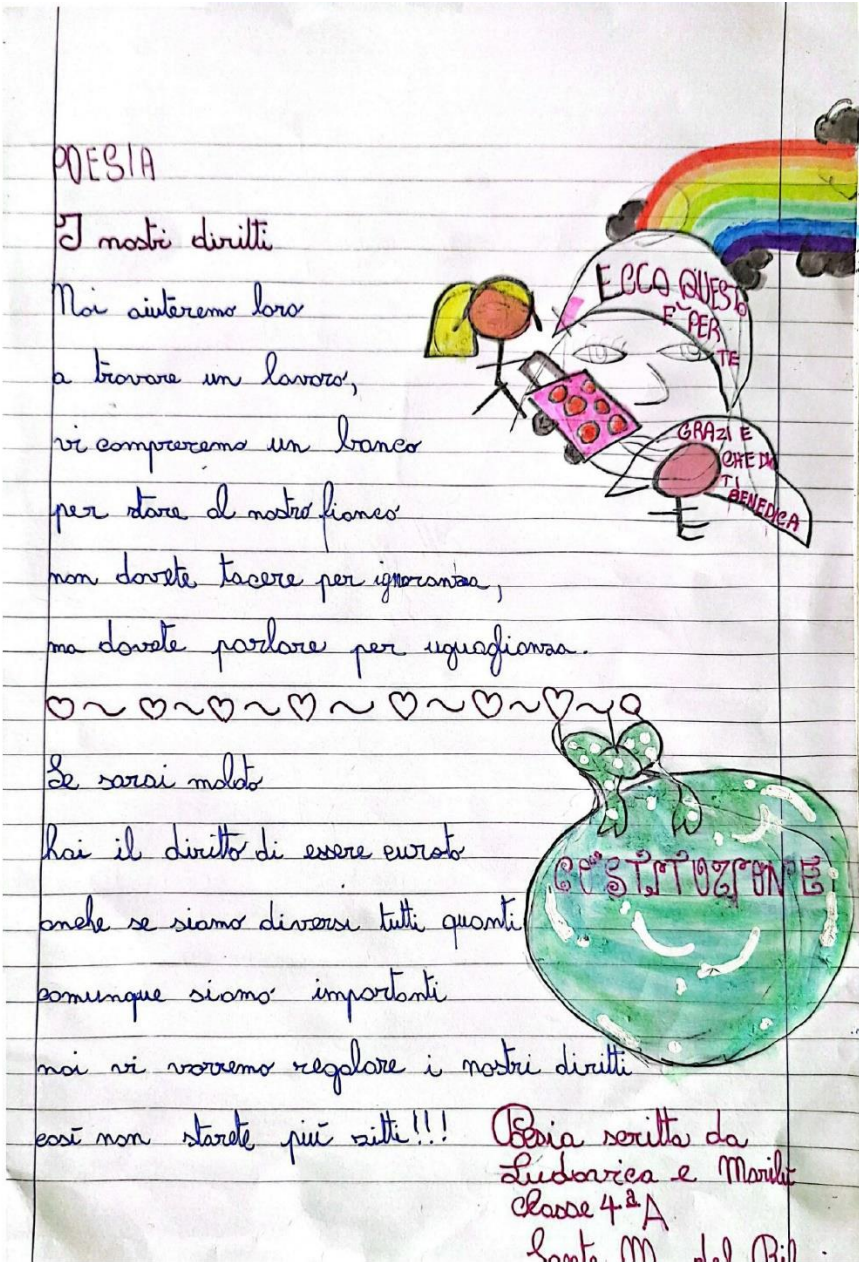 POESIA
I nostri diritti
Noi aiuteremo loro
a trovare un lavoro,
vi compreremo un banco
per stare al nostro fianco
non dovete tacere per ignoranza,
ma dovete parlare per uguaglianza.
ECCO QUESTO
E' PER
TE
GRAZIE
CHE DIO
TI
BENEDICA
Se sarai malato
hai il diritto di essere curato
anche se siamo diversi tutti quanti
comunque siamo importanti
noi vi vorremo regalare i nostri diritti
così non starete più zitti!!!
COSTITUZIONE
Poesia scritta da
Ludovica e Marilù
classe 4ª A
Santa M. del